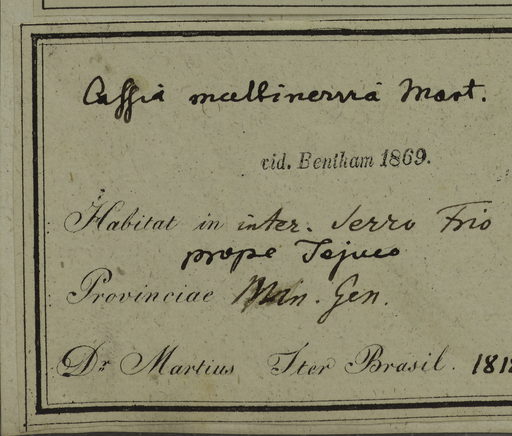 Cassia multinervia Mart.
vid. Bentham 1869.
Habitat in inter. Serro Frio
prope Tejuco
Provinciae Min. Gen.
Dr. Martius Iter Brasil. 1818